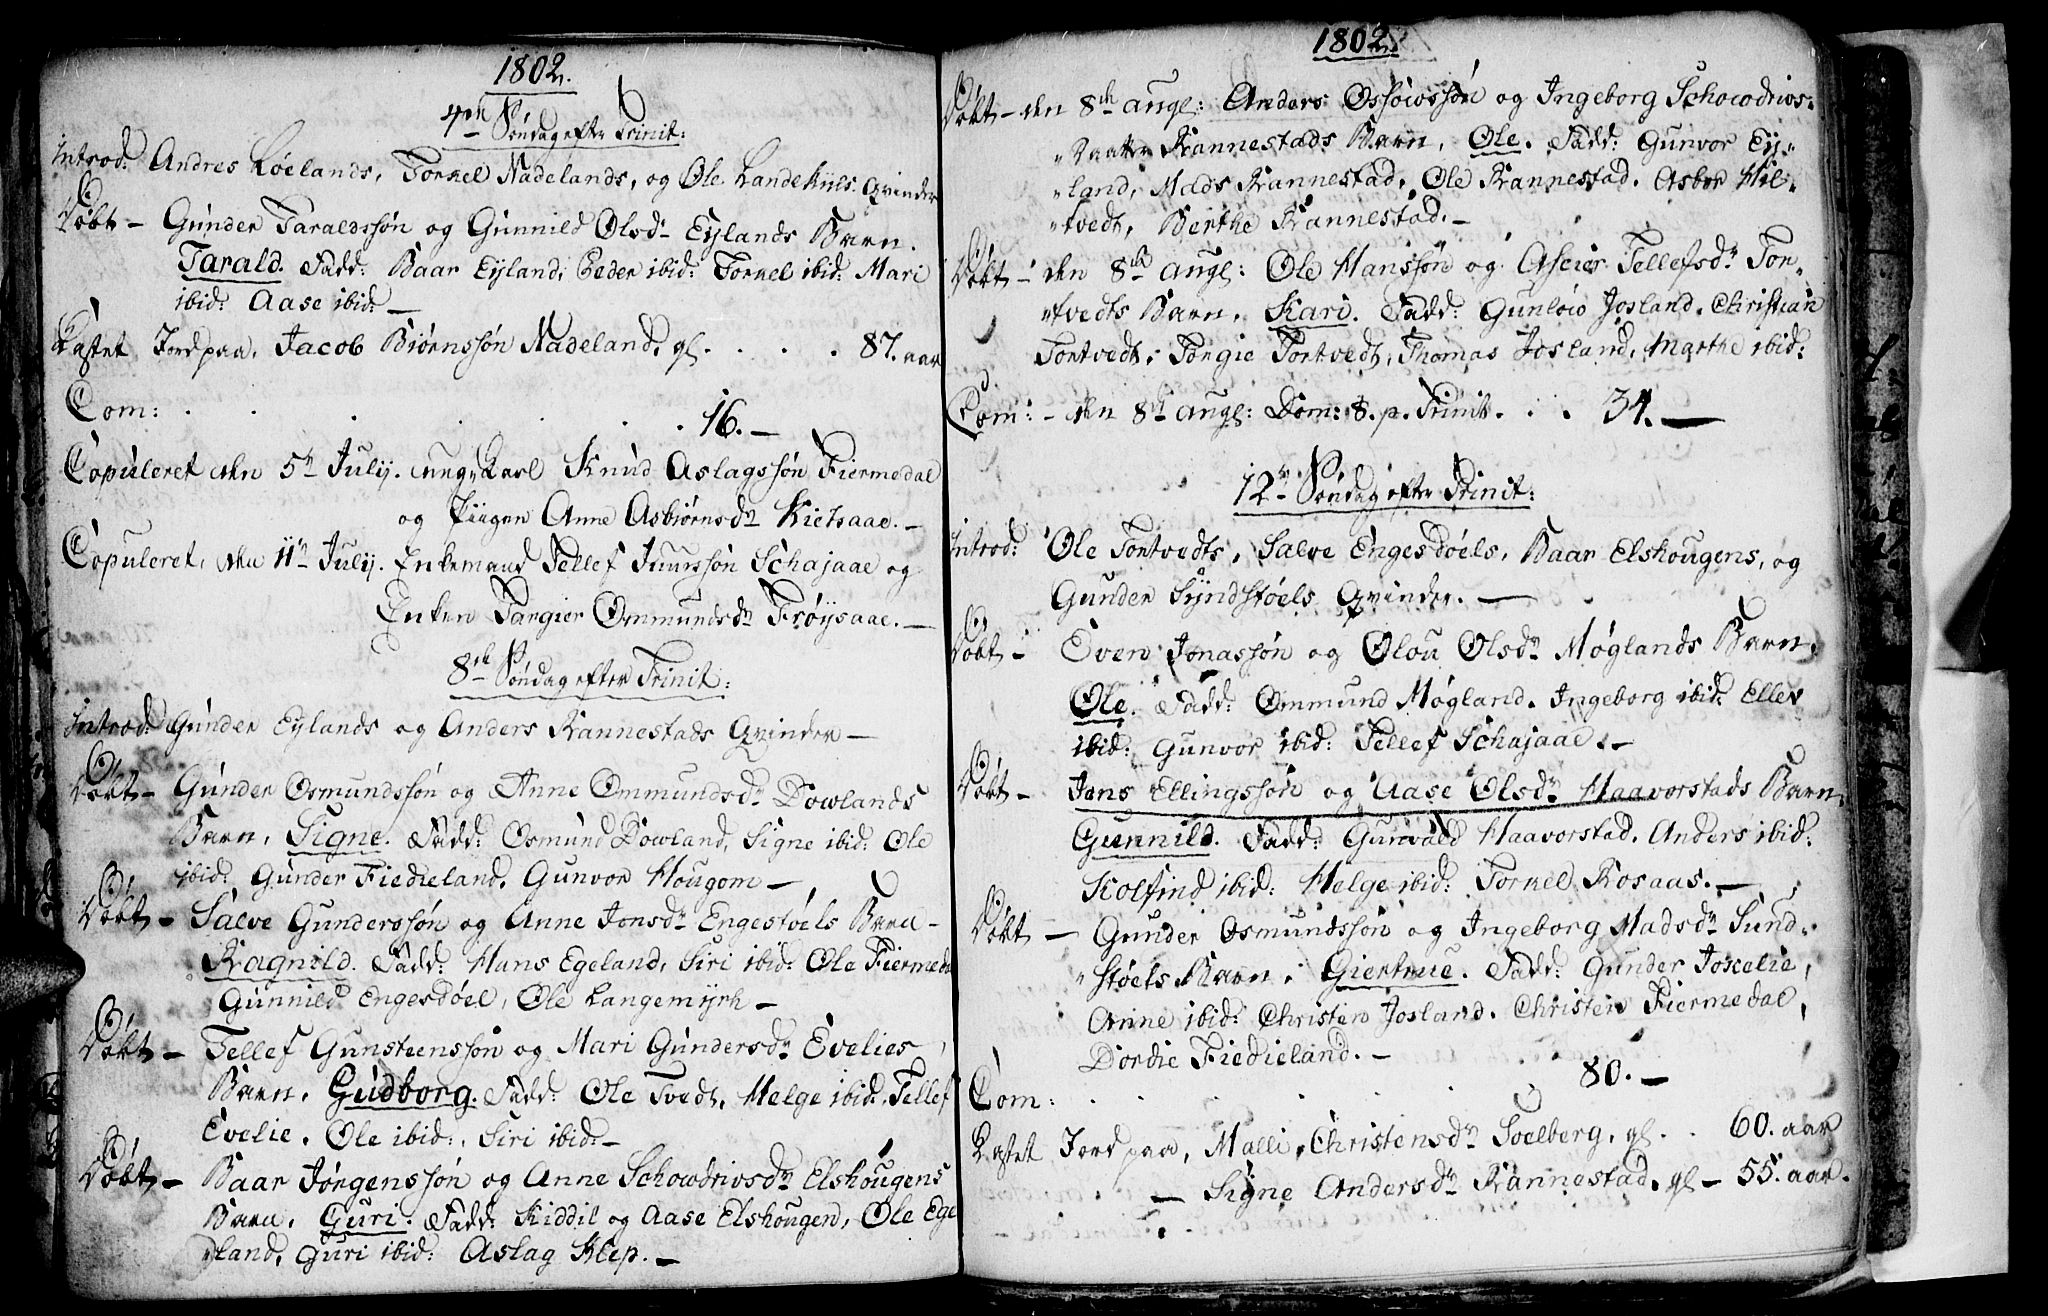 1802.
4de Søndag efter Trinit:
Introd: Andres Løelands, Torkel Nadelands, og Ole Landekiils Qvinder
Døbt – Gunder Taraldssøn og Gunnild Olsdr Eylands Barn.
Tarald. Fadd: Baar Eyland, Peder ibid: Torkel ibid: Mari
ibid: Aase ibid: –
Kastet Jord paa, Jacob Biørnssøn Nadeland, gl. . . . . 87. aar
Com: . . . . . . 16. –
Copuleret den 5te July. ungKarl Knud Aslagssøn Fiermedal
og Piigen Anne Asbiørnsdr Kietsaae. –
Copuleret, den 11te July. Enkemand Tellef Juurssøn Schajaae og
Enken Targier Ommundsdr Frøysaae. –
8de Søndag efter Trinit:
Introd: Gunder Eylands og Anders Rannestads Qvinder –
Døbt – Gunder Osmundssøn og Anne Ommundsdr Dowlands
Barn, Signe. Fadd: Osmund Dowland, Signe ibid: Ole
ibid: Gunder Fiedieland, Gunvor Hougom –
Døbt – Salve Gunderssøn og Anne Jonsdr Engestøels Barn –
Ragnild. Fadd: Hans Egeland, Siri ibid: Ole Fiermeda
Gunnild Engesdøel, Ole Langemyrh –
Døbt – Tellef Gunsteenssøn og Mari Gundersdr Evelies
Barn, Gudborg. Fadd: Ole Tvedt, Helge ibid: Tellef
Evelie, Ole ibid:, Siri ibid: –
Døbt – Baar Jørgenssøn og Anne Schowdrivsdr Elshougens
Barn, Guri. Fadd: Kiddil og Aase Elshougen, Ole Ege
"land, Guri ibid: Aslag Klep. –
1802
Døbt – den 8de augl: Anders Ossowssøn og Ingeborg Schowdrivs=
"Daatter Rannestads Barn, Ole. Fadd: Gunvor Ey"
"land, Mads Rannestad, Ole Rannestad. Asbor Mil"
"tvedt, Berthe Rannestad. –
Døbt – den 8de augl: Ole Hanssøn og Aseier Tellefsdr Tor"
"tvedts Barn, Kari. Fadd: Gunløw Josland, Christian
Tortvedt, Torgie Tortvedt, Thomas Josland, Marthe ibid:
Com: – den 8de augl: Dom: 8. p. Trinit. . . . 34. –
12te Søndag efter Trinit:
Introd: Ole Tortvedts, Salve Engesdøels, Baar Elshougens, og
Gunder Syndstøels Qvinder. –
Døbt – Even Jonassøn og Olou Olsdr Møglands Barn,
Ole. Fadd: Ommund Møgland. Ingeborg ibid: Eller
ibid: Gunvor ibid: Tellef Schajaae. –
Døbt – Jens Ellingssøn og Aase Olsdr Haavorstads Barn.
Gunnild. Fadd: Gunvald Haavorstad. Anders ibid:
Kolfind ibid: Helge ibid: Torkel Rosaas. –
Døbt – Gunder Osmundssøn og Ingeborg Madsdr Sund=
"støels Barn, Giertrue. Fadd: Gunder Joxelie,
Anne ibid: Christen Josland, Christen Fiermedal,
Dordie Fiedieland. –
Com: . . . . . 80. –
Kastet Jord paa, Malli Christensdr Soelberg, gl. . . 60. aar
– Signe Andersdr Rannestad, gl – 55. aar.